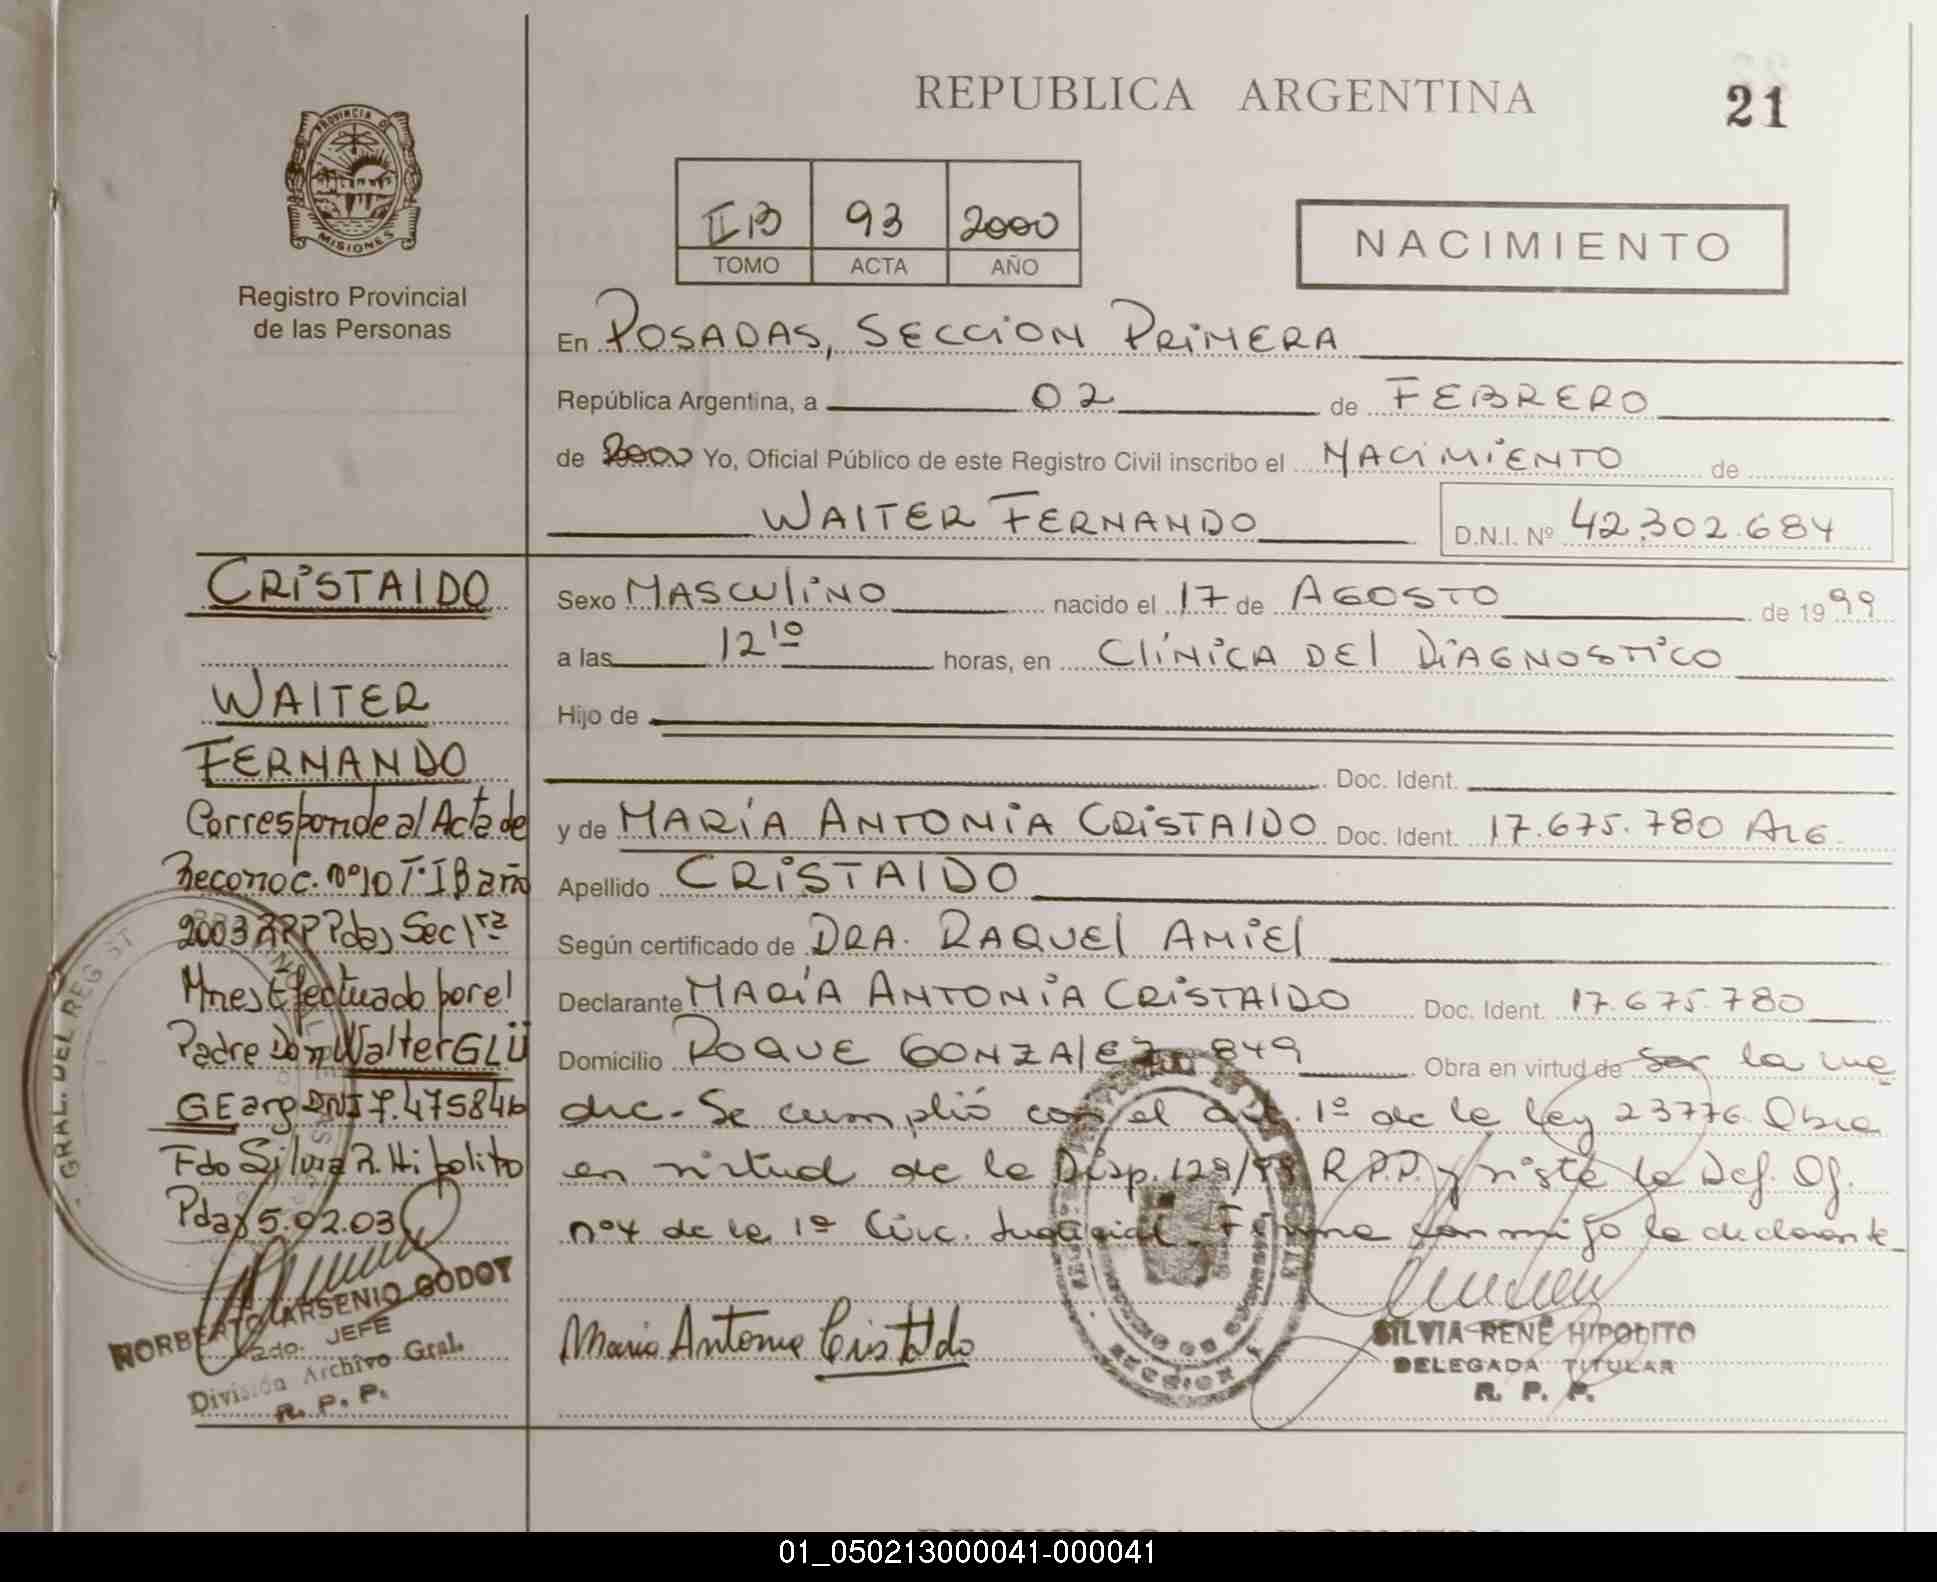 REPUBLICA ARGENTINA
21
PROVINCIA DE
MISIONES
Registro Provincial
de las Personas
II B 93 2000
TOMO ACTA AÑO
NACIMIENTO
En POSADAS, SECCION PRIMERA
República Argentina, a 02 de FEBRERO
de 2000 Yo, Oficial Público de este Registro Civil inscribo el NACIMIENTO de
WALTER FERNANDO D.N.I. Nº 42.302.684
CRISTALDO
WALTER
FERNANDO
Corresponde al Acta de
Reconoc. nº 10 Tº I B año
2003 RPP Pdas Sec 1ra
Mnes Efectuado por el
Padre Don Walter GLÜ
GE arg DNI 7.475846
Fdo Silvia R. Hipolito
Pdas 5.02.03
NORBERTO ARSENIO GODOY
2do. JEFE
División Archivo Gral.
R. P. P.
GRAL. DEL REGIST
Sexo MASCULINO nacido el 17 de AGOSTO de 1999
a las 12 10 horas, en CLÍNICA DEL DIAGNOSTICO
Hijo de
Doc. Ident.
y de MARÍA ANTONIA CRISTALDO Doc. Ident. 17.675.780 ARG.
Apellido CRISTALDO
Según certificado de DRA. RAQUEL AMIEL
Declarante MARÍA ANTONIA CRISTALDO Doc. Ident. 17.675.780
Domicilio ROQUE GONZALEZ 849 Obra en virtud de ser la ma
dre.- Se cumplió con el art. 1º de la ley 23776. Obra
en virtud de la Disp. 129/98 R.P.P. y vista la Def. Of.
nº 4 de la 1ª Circ. Judicial. Firma conmigo la declarante
Maria Antonia Cristaldo
SECCION 1
SILVIA RENÉ HIPOLITO
DELEGADA TITULAR
R. P. P.
01_050213000041-000041